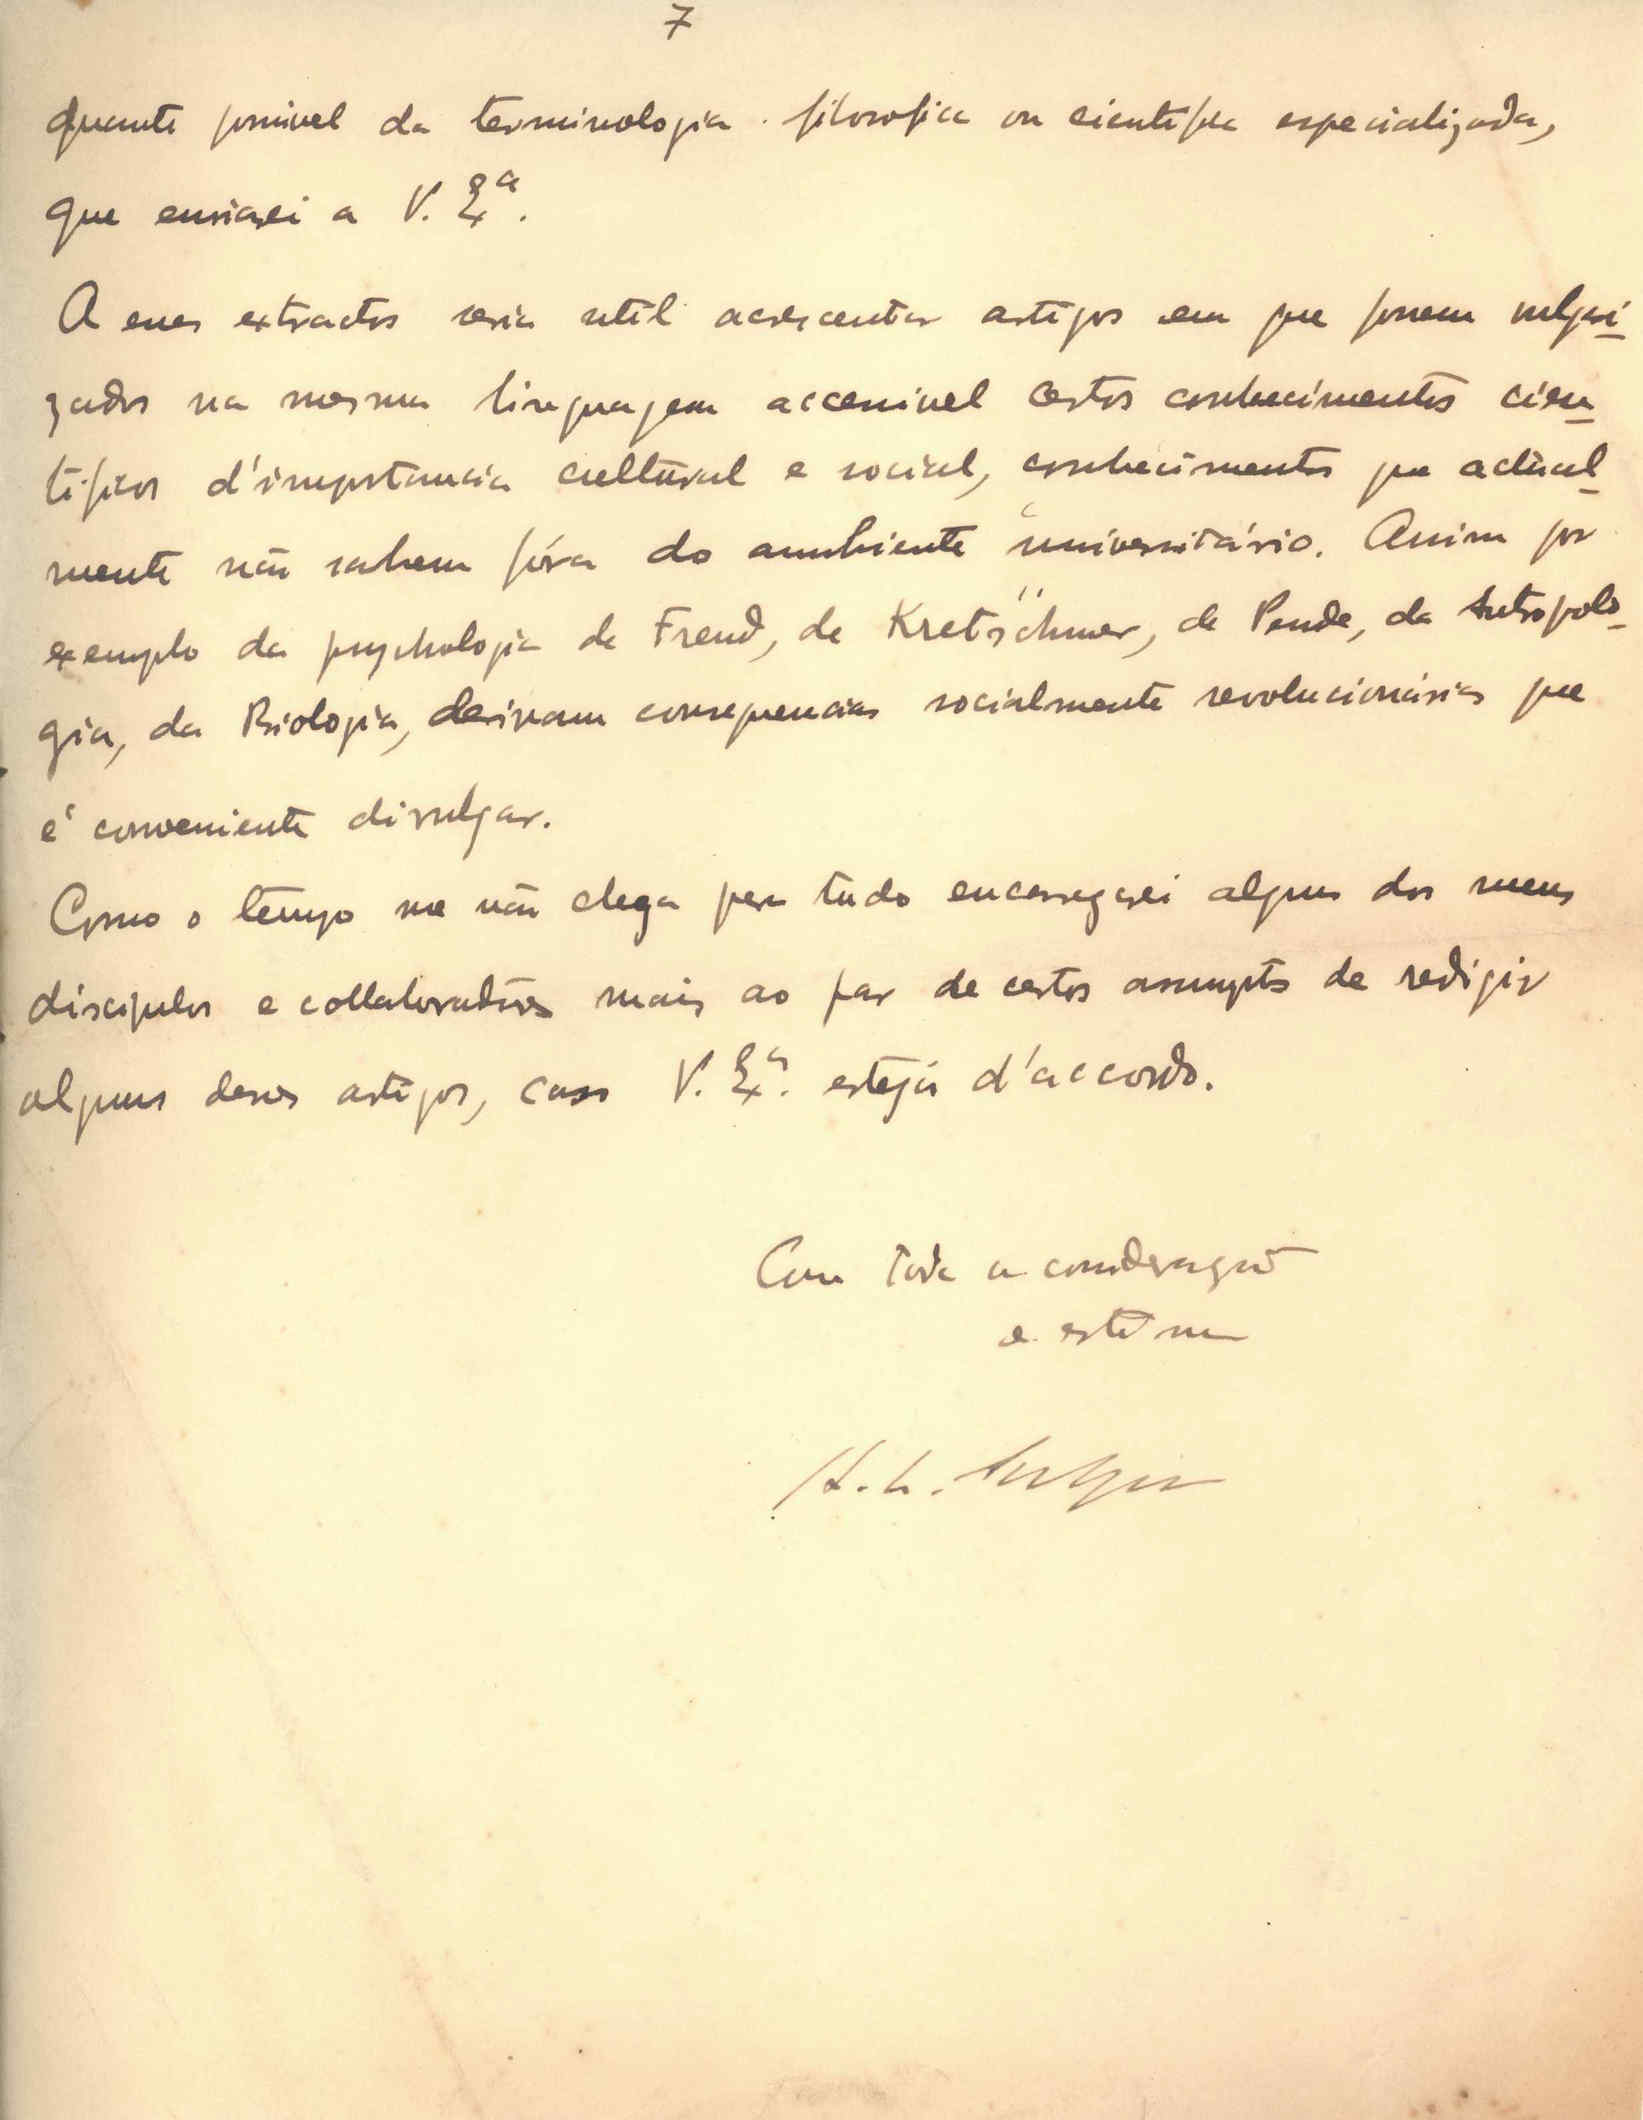 7
quanto possivel da terminologia filosofica ou cientifica especializada,
que enviarei a V. Exª.
A esses extractos seria util acrescentar artigos em que fossem vulgari-
zados na mesma linguagem accessivel certos conhecimentos cien-
tificos d'importancia cultural e social, conhecimentos que actual-
mente não sahem fóra do ambiente universitário. Assim por
exemplo da psychologia de Freud, de Kretschmer, de Pende, da Antropolo-
gia, da Biologia, derivam consequencias socialmente revolucionárias que
é conveniente divulgar.
Como o tempo me não chega para tudo encarregarei alguns dos meus
discipulos e collaboradores mais ao par de certos assumptos de redigir
alguns desses artigos, caso V. Exª. esteja d'accordo.
Com toda a consideração
e estima